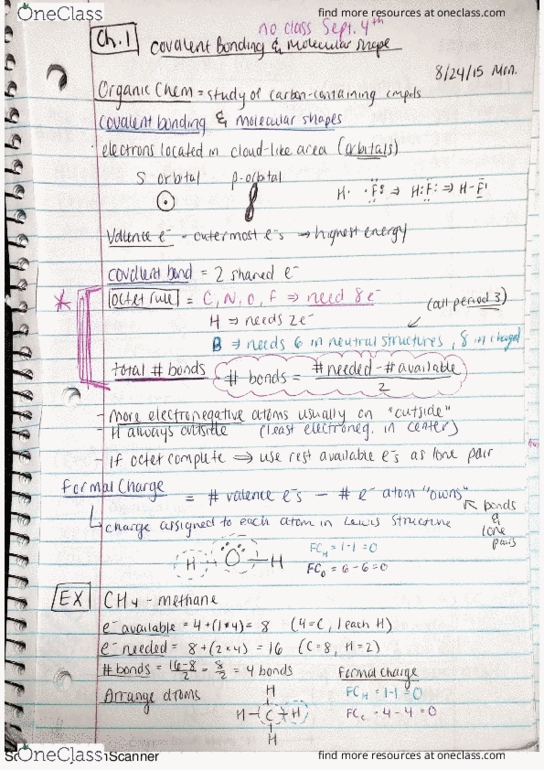 OneClass find more resources at oneclass.com
no class Sept. 4th
Ch. 1 Covalent Bonding & Molecular Shape
8/24/15 Mon.
Organic Chem = study of carbon-containing cmpds
covalent bonding & molecular shapes
electrons located in cloud-like area (orbitals)
S orbital p-orbital
H· ·F: ⇒ H:F: ⇒ H-F
Valence e⁻ - outermost e⁻s → highest energy
covalent bond = 2 shared e⁻
* octet rule = C, N, O, F ⇒ need 8e⁻ (all period 3)
H ⇒ needs 2e⁻
B ⇒ needs 6 in neutral structures, 8 in charged
total # bonds # bonds = #needed - #available / 2
- More electronegative atoms usually on "outside"
- H always outside (least electroneg. in center)
- if octet complete ⇒ use rest available e⁻s as lone pair
Formal Charge = # valence e⁻s - # e⁻ atom "owns"
bonds & lone pairs
charge assigned to each atom in Lewis Structure
H - O - H
FC_H = 1-1=0
FC_O = 6-6=0
EX CH4 - methane
e⁻ available = 4+(1*4)= 8 (4=C, 1 each H)
e⁻ needed = 8+(2*4) = 16 (C=8, H=2)
# bonds = 16-8/2 = 8/2 = 4 bonds Formal charge
Arrange atoms
H
H-C-H
H
FC_H = 1-1=0
FC_C = 4-4=0
OneClass Scanner find more resources at oneclass.com